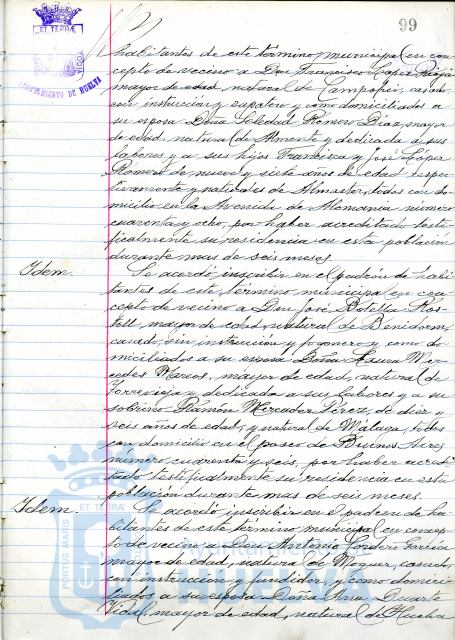 99
ET TERRÆ
AYUNTAMIENTO DE HUELVA
habitantes de este término municipal en con-
cepto de vecino a Don Francisco López Rioja
mayor de edad, natural de Campofrío, casado
con instrucción y zapatero y como domiciliados a
su esposa Doña Soledad Romero Díaz, mayor
de edad, natural de Almonte y dedicada a sus
labores y a sus hijos Francisca y José López
Romero de nueve y siete años de edad respec-
tivamente y naturales de Almaster, todos con do-
micilio en la Avenida de Alemania número
cuarenta y ocho, por haber acreditado testi-
ficalmente su residencia en esta población
durante mas de seis meses.
Idem. Se acordó inscribir en el padrón de habi-
tantes de este término municipal en con-
cepto de vecino a Don José Botella Ros-
toll, mayor de edad, natural de Benidorm,
casado, sin instrucción y fogonero y como do-
miciliados a su esposa Doña Laura Mer-
cedes Marcos, mayor de edad, natural de
Torrevieja y dedicada a sus labores y a su
sobrino Ramón Mercader Pérez, de diez y
seis años de edad y natural de Málaga, todos
con domicilio en el paseo de Buenos Aires
número cuarenta y seis, por haber acredi-
tado testificalmente su residencia en esta
población durante mas de seis meses.
Idem. Se acordó inscribir en el padron de ha-
bitantes de este término municipal en concep-
to de vecino a Don Antonio Cordero García
mayor de edad, natural de Moguer, casado,
con instrucción y fundidor, y como domici-
liados a su esposa Doña Ana Duarte
Vidal, mayor de edad, natural de Huelva
PORTUS MARIS ET TERRÆ
Ayuntamiento
HUELVA